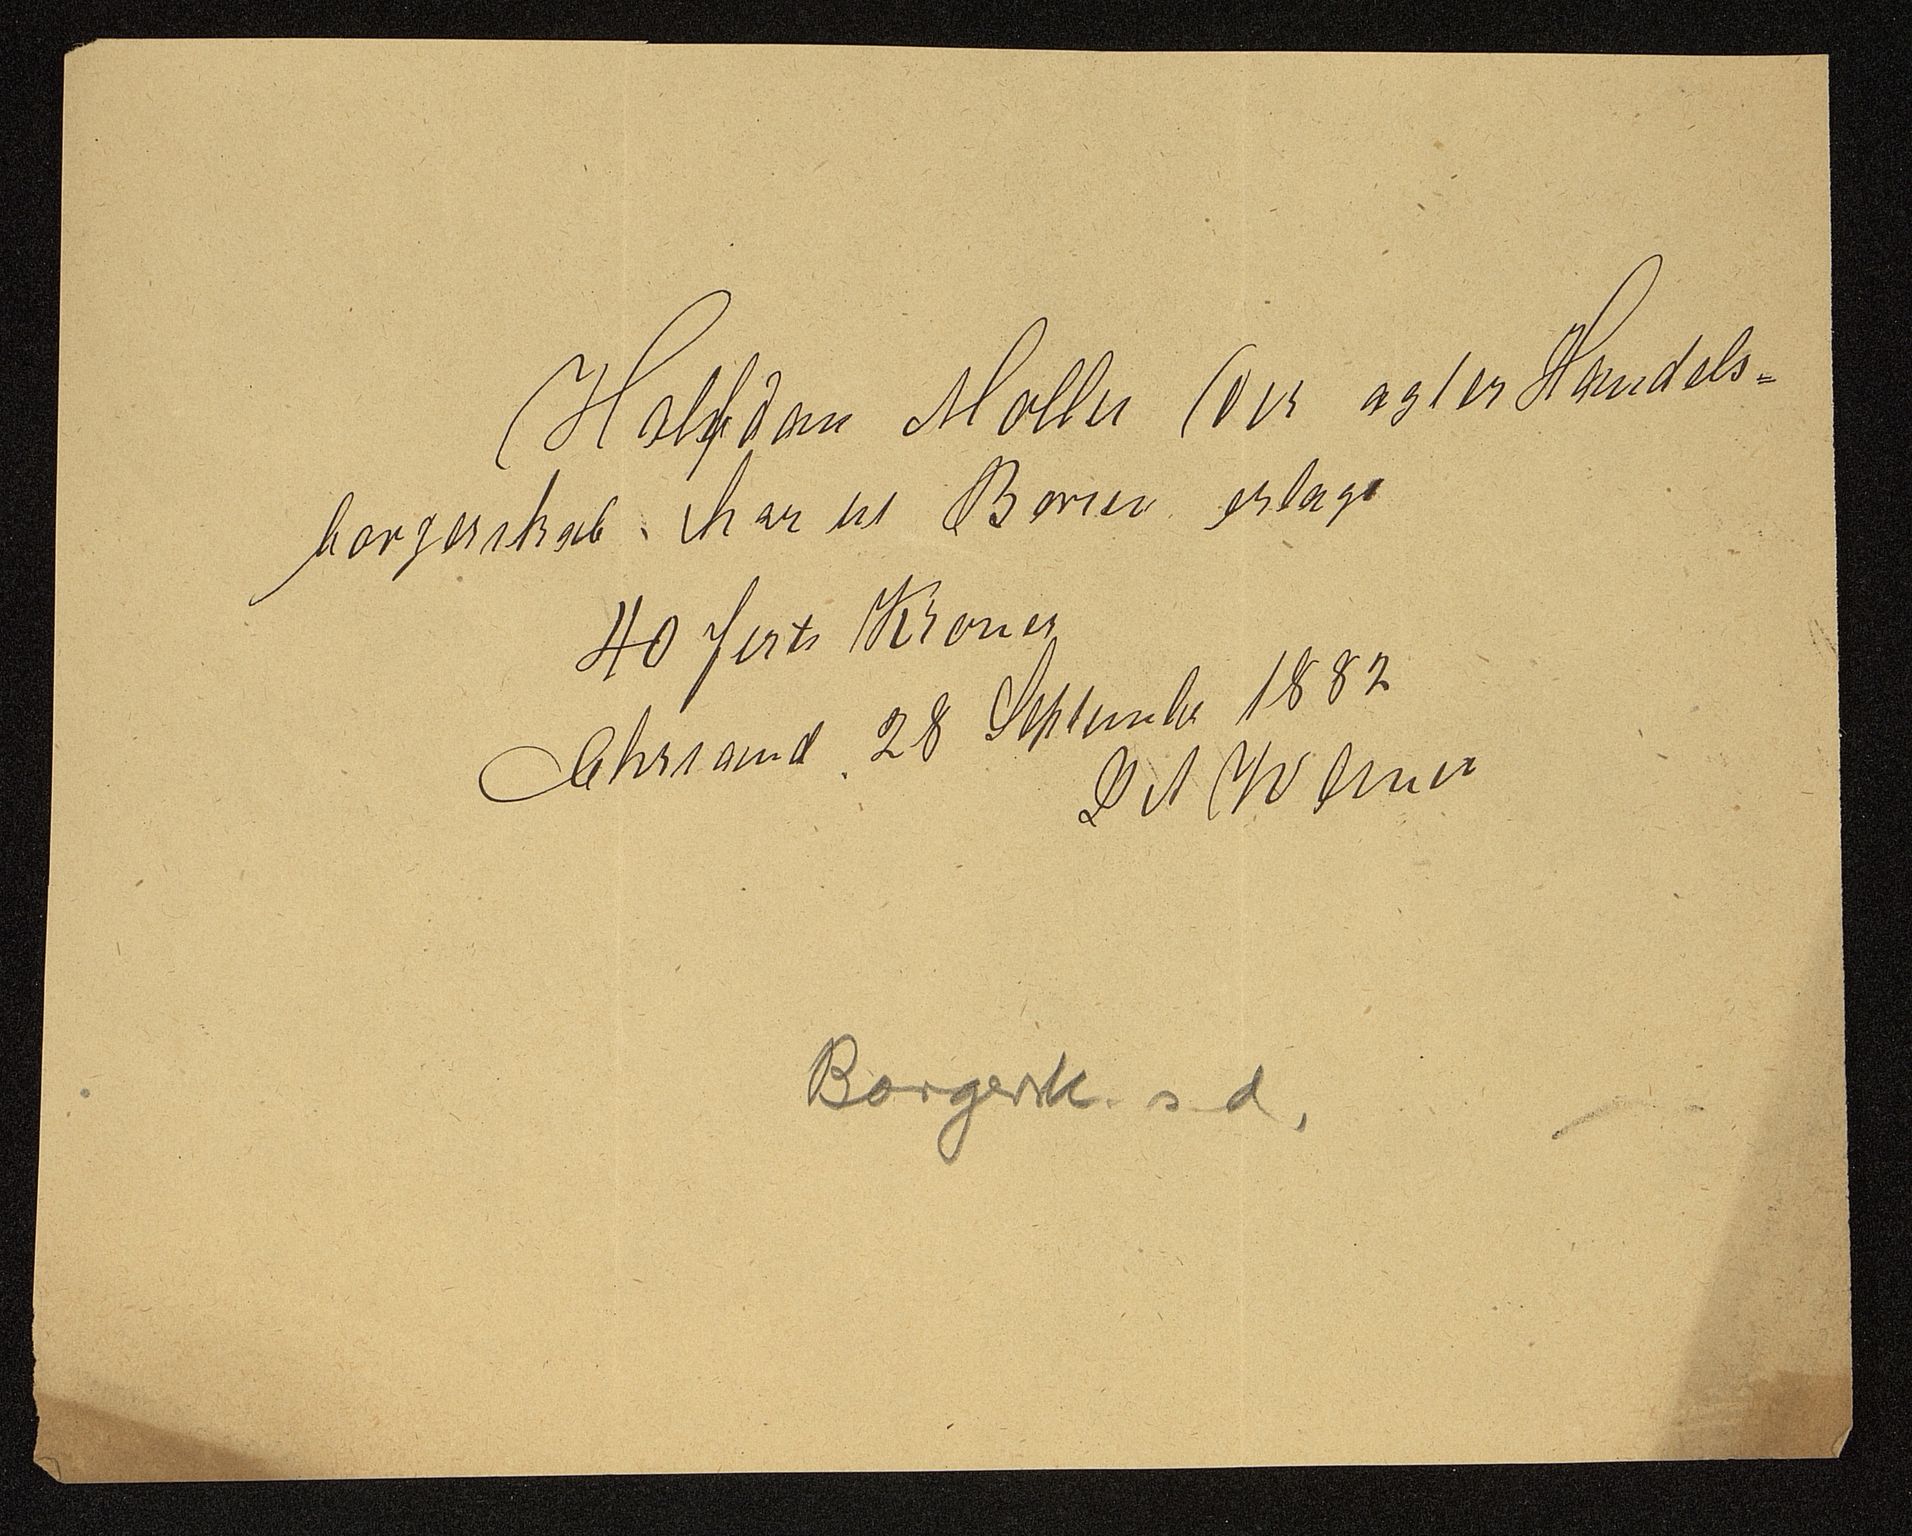 Halfdan Møller (der agter Handels=
borgerskab. har til Byen erlagt
40 førti Kroner
Chrsand. 28 September 1882
Borgersk. s. d.